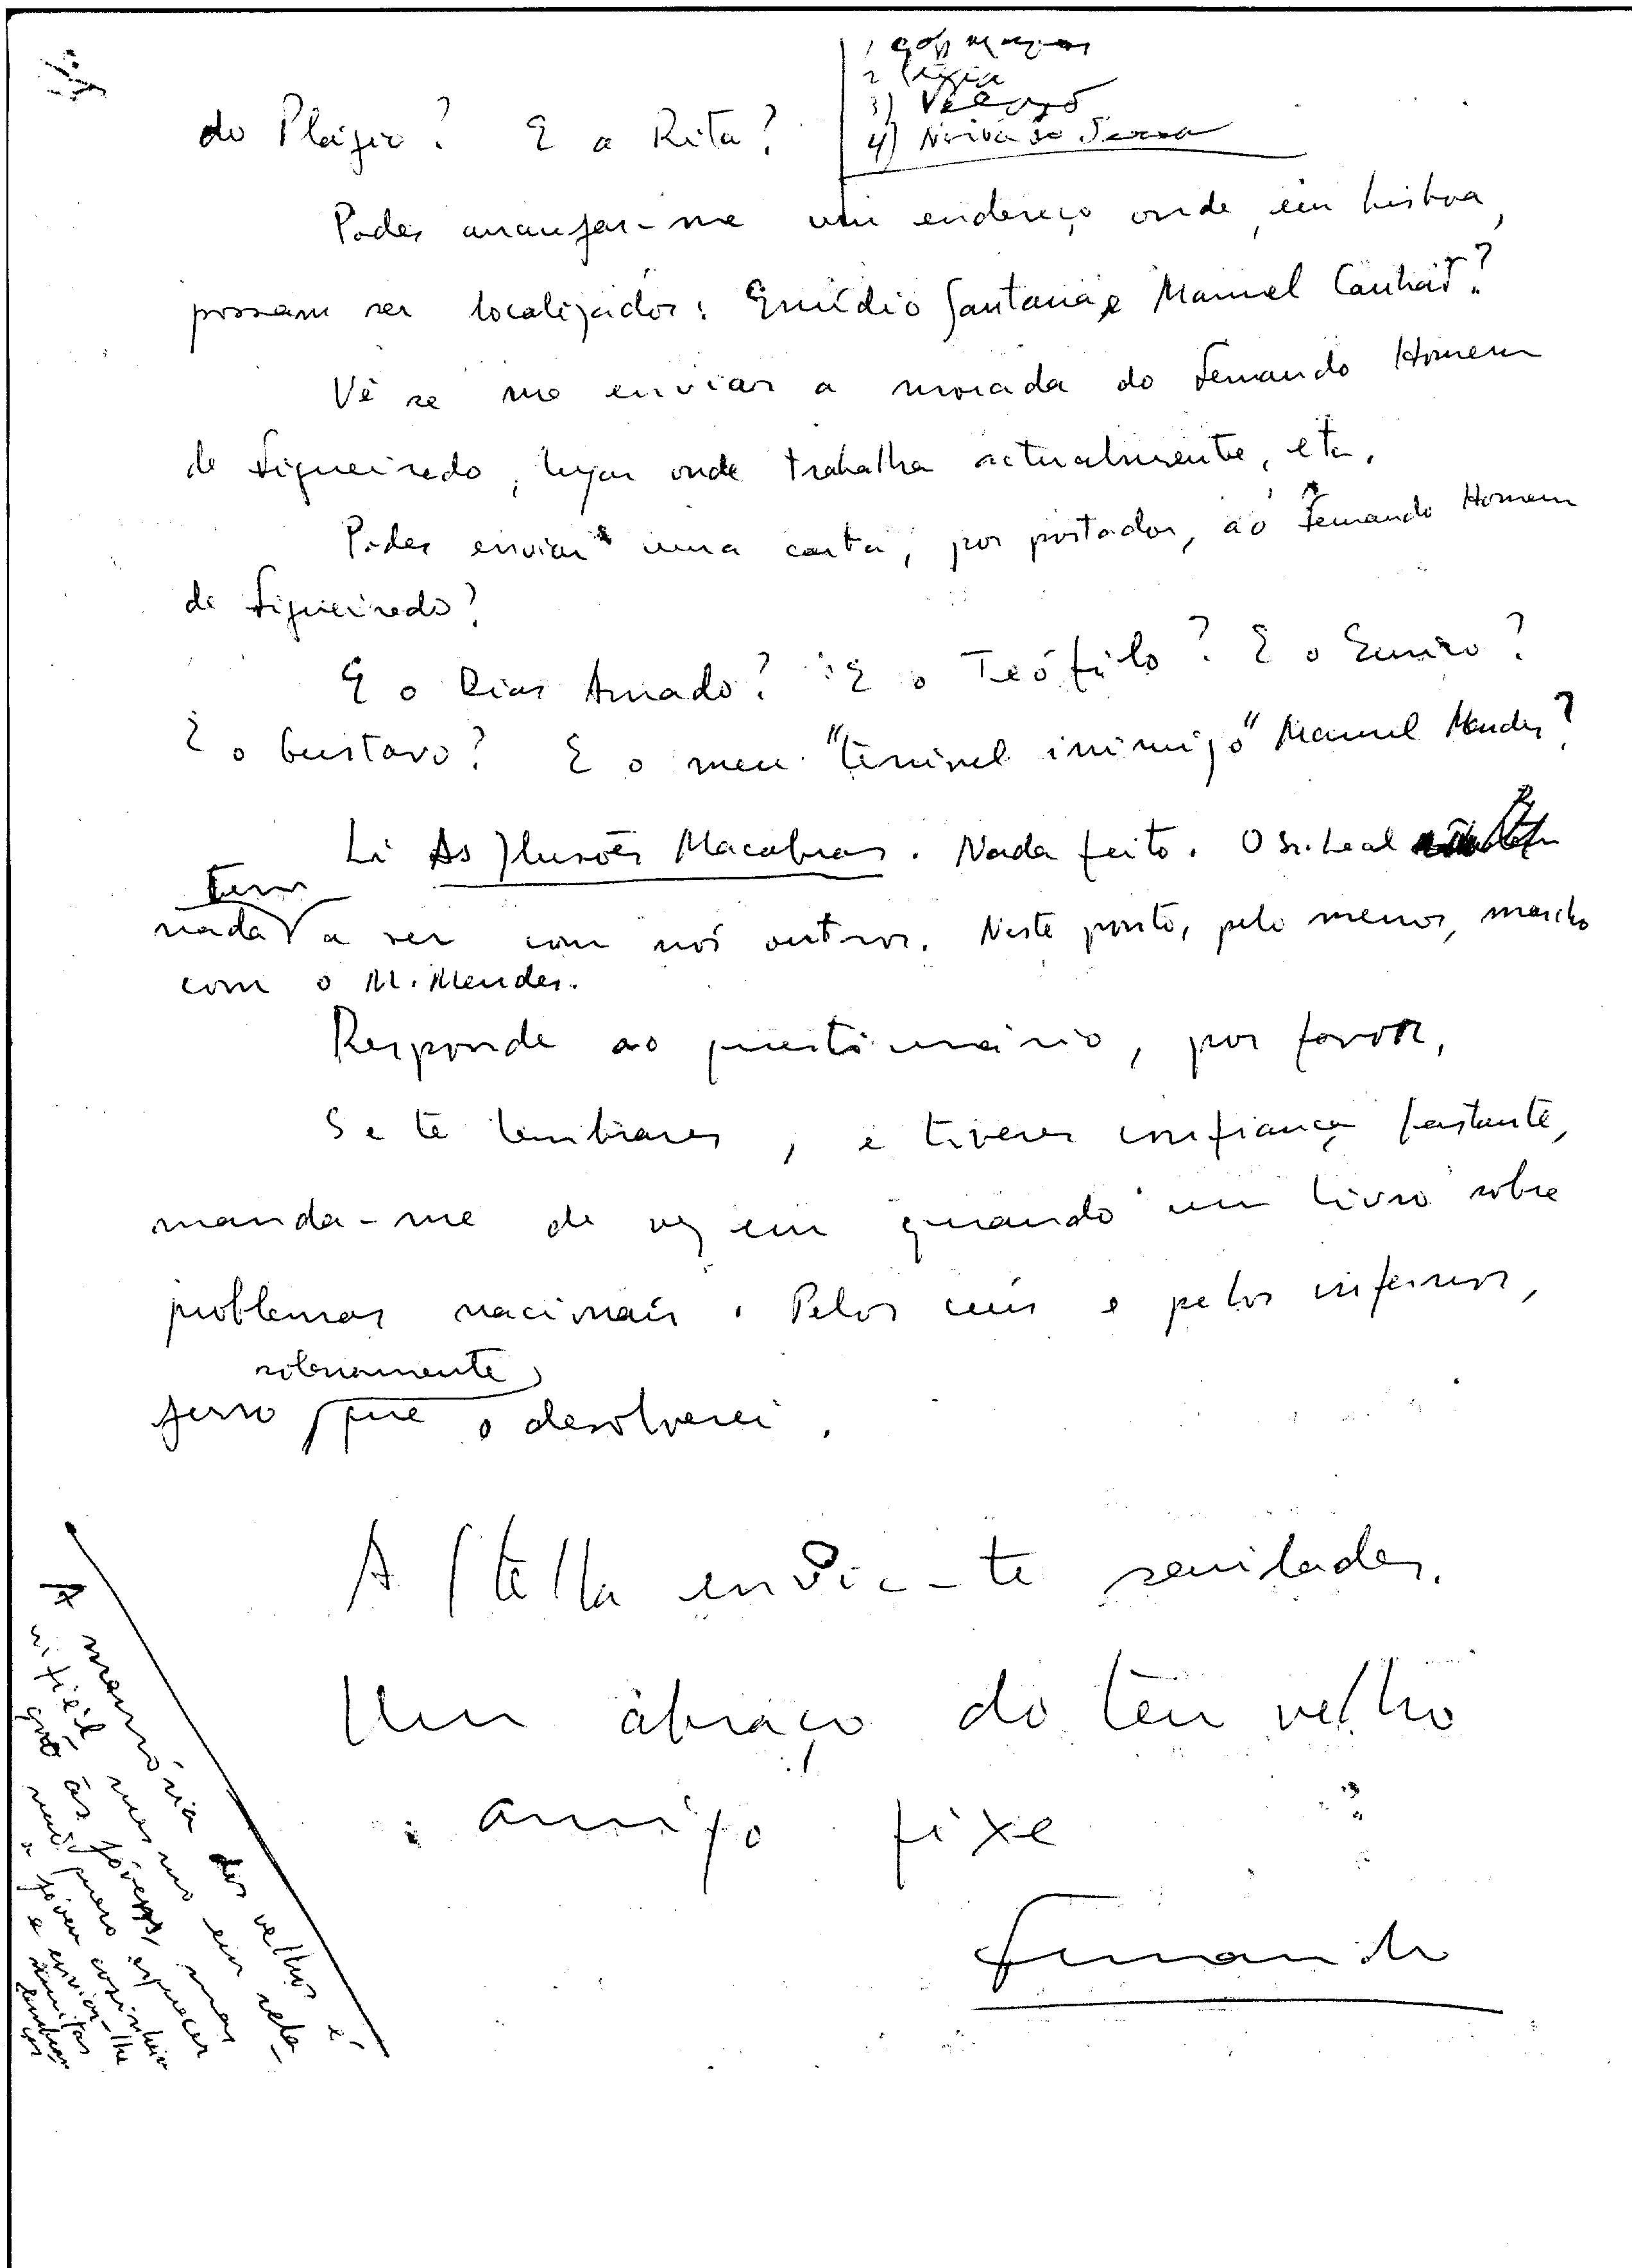 do Plágio? E a Rita?
3) Veloso
4) Noiva da Serra
Podes arranjar-me um endereço onde, em Lisboa,
possam ser localizados: Emídio Santana e Manuel Canhão?
Vê se me envias a morada do Fernando Homem
de Figueiredo, lugar onde trabalha actualmente, etc.
Podes enviar uma carta, por portador, ao Fernando Homem
de Figueiredo?
E o Dias Amado? E o Teófilo? E o Eurico?
E o Gustavo? E o meu "terrível inimigo" Manuel Mendes?
Li As Ilusões Macabras. Nada feito. O Sr. Leal
nada tem a ver com nós outros. Neste ponto, pelo menos, marcho
com o M. Mendes.
Responde ao questionário, por favor.
Se te lembrares, e tiveres confiança bastante,
manda-me de vez em quando um livro sobre
problemas nacionais. Pelos céus e pelos infernos,
juro solenemente que o devolverei.
A Stella envia-te saudades.
Um abraço do teu velho
amigo fixe
Fernando
A memória dos velhos é
infiel mesmo em rela-
ção às jóvens, mas
não quero esquecer
a jóvem cosinheira
e enviar-lhe
muitas
lembranças